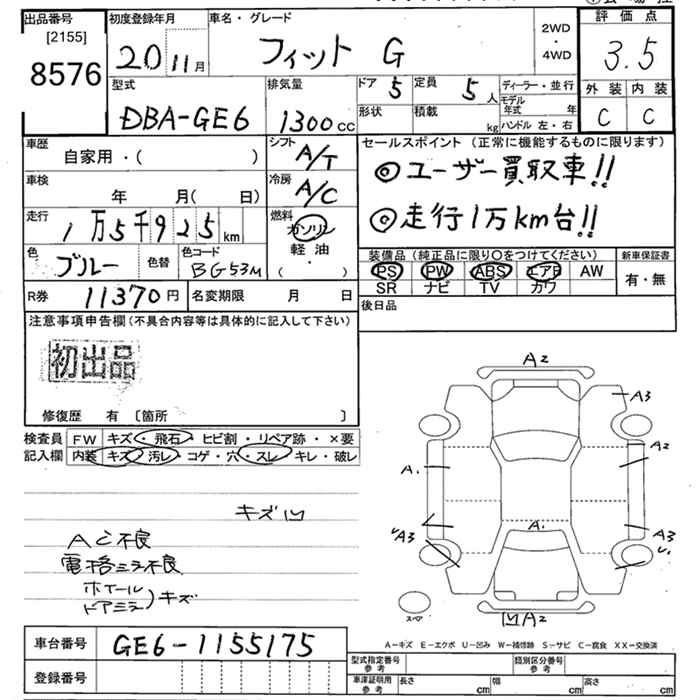 出品番号 [2155] 8576
初度登録年月 20 11月
車名・グレード フィット G
2WD・4WD
評価点 3.5
外装 C 内装 C
型式 DBA-GE6
排気量 1300cc
ドア 5 定員 5人
形状 積載 kg
ディーラー・並行
モデル年式 年
ハンドル 左・右
車歴 自家用・( )
シフト A/T
車検 年 月( 日)
冷房 A/C
走行 1万5千925km
燃料 ガソリン 軽油 ・ ( )
色 ブルー 色替 色コード BG53M
R券 11370円 名変期限 月 日
セールスポイント (正常に機能するものに限ります)
◎ユーザー買取車!!
◎走行1万km台!!
装備品 (純正品に限り○をつけてください) 新車保証書
PS PW ABS エアB AW 有・無
SR ナビ TV カワ
後日品
注意事項申告欄(不具合内容等は具体的に記入して下さい)
初出品
修復歴 有 〔箇所 〕
検査員 FW キズ・飛石・ヒビ割・リペア跡・×要
記入欄 内装 キズ・汚レ・コゲ・穴・スレ・キレ・破レ
キズ凹
AC不良
電格ミラ不良
ホイール
ドアミラ)キズ
A2
A3
A2
A1
A1
A3
A3
スペア
凹A2
車台番号 GE6-1155175
登録番号
A-キズ E-エクボ U-凹み W-補修跡 S-サビ C-腐食 XX-交換済
型式指定番号 参考 類別区分番号 参考
車庫証明用 参考 長さ cm 幅 cm 高さ cm